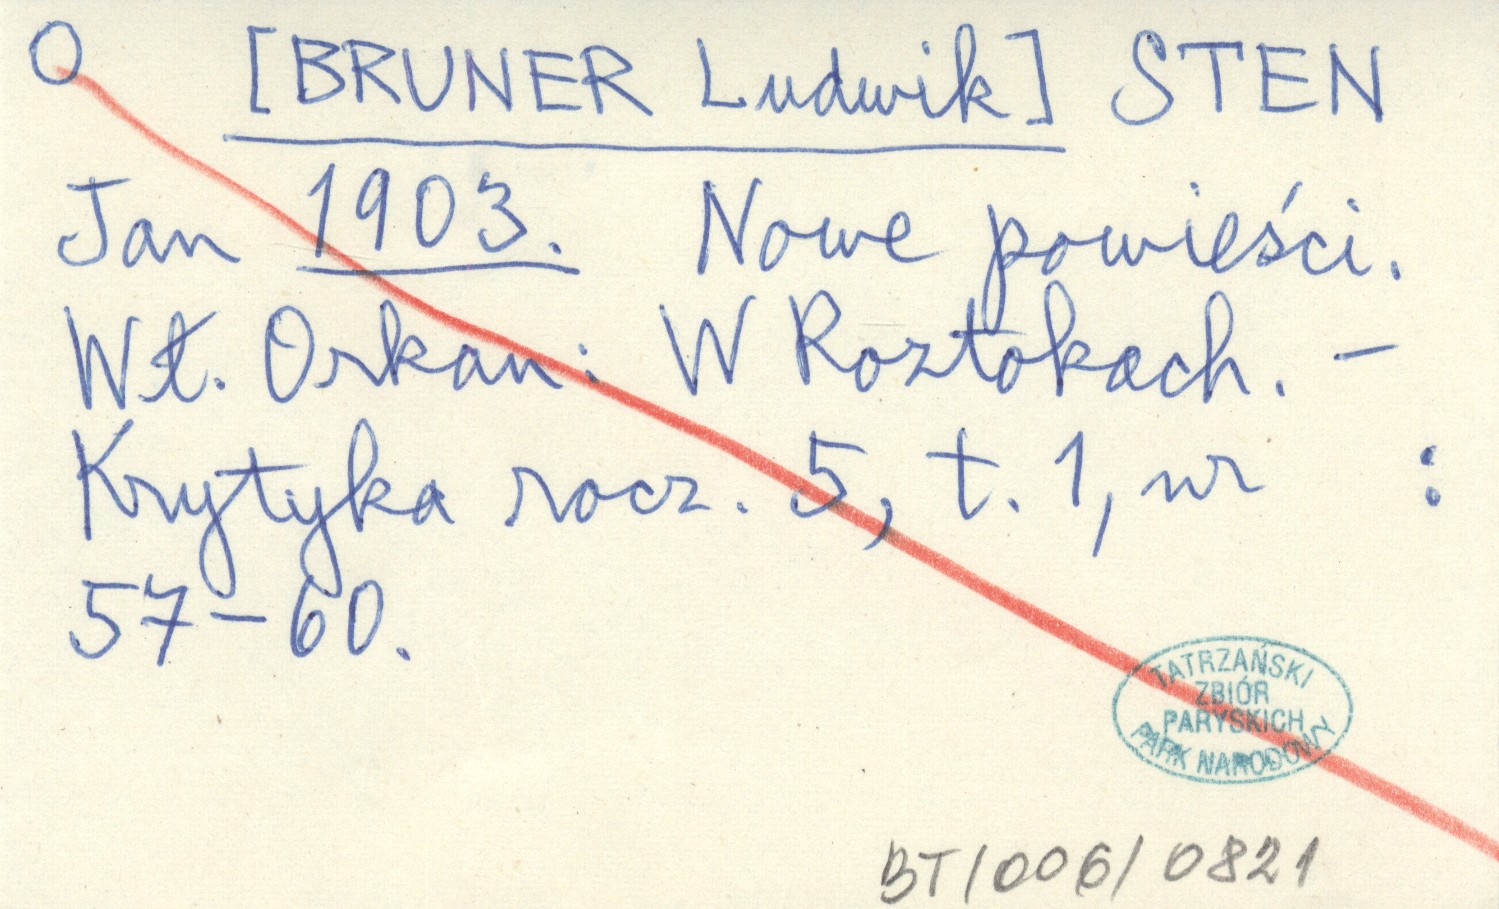 O [BRUNER Ludwik] STEN
Jan 1903. Nowe powieści.
Wł. Orkan: W Roztokach. –
Krytyka rocz. 5, t. 1, nr :
57–60.
TATRZAŃSKI
ZBIÓR
PARYSKICH
PARK NARODOWY
BT/006/0821